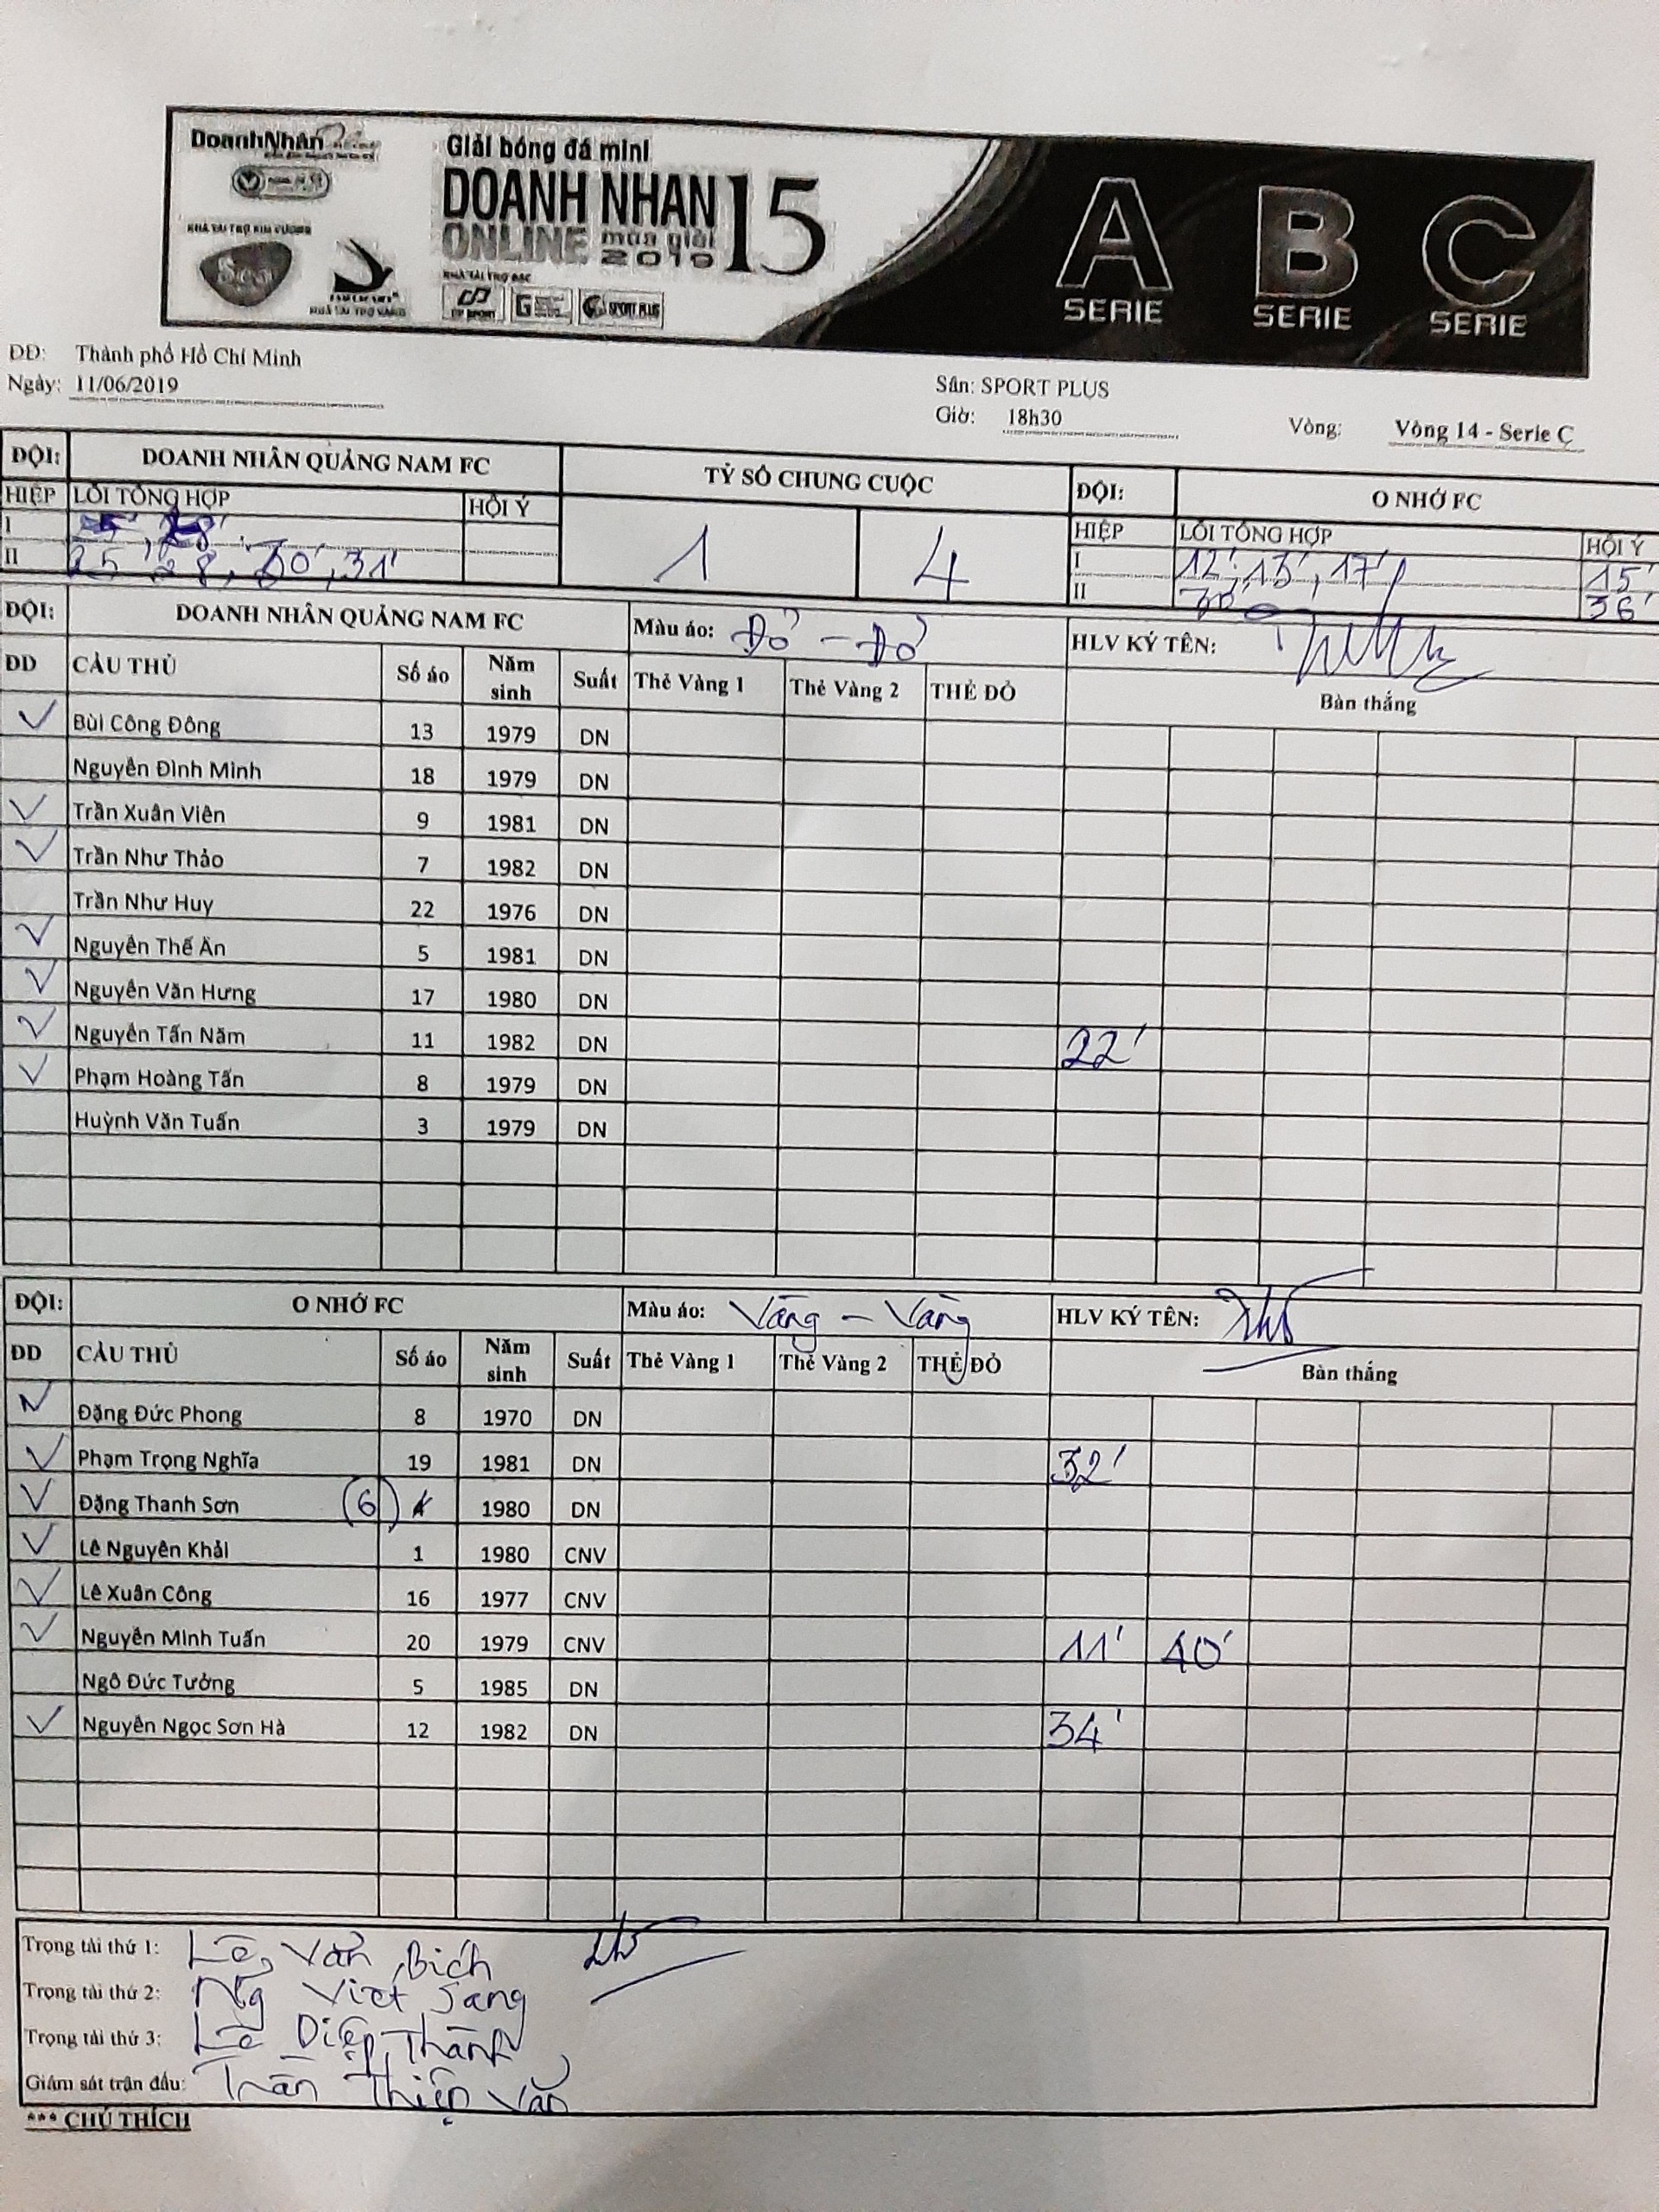 DoanhNhân
Giải bóng đá mini
DOANH NHAN 15
ONLINE mùa giải 2019
NHÀ TÀI TRỢ KIM CƯƠNG
NHÀ TÀI TRỢ BẠC
NHÀ TÀI TRỢ VÀNG
SPORT PLUS
A SERIE B SERIE C SERIE
ĐD: Thành phố Hồ Chí Minh
Ngày: 11/06/2019
Sân: SPORT PLUS
Giờ: 18h30
Vòng: Vòng 14 - Serie C
ĐỘI: DOANH NHÂN QUẢNG NAM FC TỶ SỐ CHUNG CUỘC ĐỘI: O NHỚ FC
HIỆP LỖI TỔNG HỢP HỘI Ý 1 4 HIỆP LỖI TỔNG HỢP HỘI Ý
I I 12', 13', 17' 15'
II 25', 28', 30', 31' II 30' 36'
ĐỘI: DOANH NHÂN QUẢNG NAM FC Màu áo: Đỏ - Đỏ HLV KÝ TÊN:
ĐD CẦU THỦ Số áo Năm sinh Suất Thẻ Vàng 1 Thẻ Vàng 2 THẺ ĐỎ Bàn thắng
Bùi Công Đông 13 1979 DN
Nguyễn Đình Minh 18 1979 DN
Trần Xuân Viên 9 1981 DN
Trần Như Thảo 7 1982 DN
Trần Như Huy 22 1976 DN
Nguyễn Thế Ân 5 1981 DN
Nguyễn Văn Hưng 17 1980 DN
Nguyễn Tấn Năm 11 1982 DN 22'
Phạm Hoàng Tấn 8 1979 DN
Huỳnh Văn Tuấn 3 1979 DN
ĐỘI: O NHỚ FC Màu áo: Vàng - Vàng HLV KÝ TÊN:
ĐD CẦU THỦ Số áo Năm sinh Suất Thẻ Vàng 1 Thẻ Vàng 2 THẺ ĐỎ Bàn thắng
Đặng Đức Phong 8 1970 DN
Phạm Trọng Nghĩa 19 1981 DN 32'
Đặng Thanh Sơn (6) 1980 DN
Lê Nguyên Khải 1 1980 CNV
Lê Xuân Công 16 1977 CNV
Nguyễn Minh Tuấn 20 1979 CNV 11' 40'
Ngô Đức Tưởng 5 1985 DN
Nguyễn Ngọc Sơn Hà 12 1982 DN 34'
Trọng tài thứ 1: Lê Văn Bích
Trọng tài thứ 2: Ng Việt Sang
Trọng tài thứ 3: Lê Diệp Thành
Giám sát trận đấu: Trần Thiện Văn
*** CHÚ THÍCH